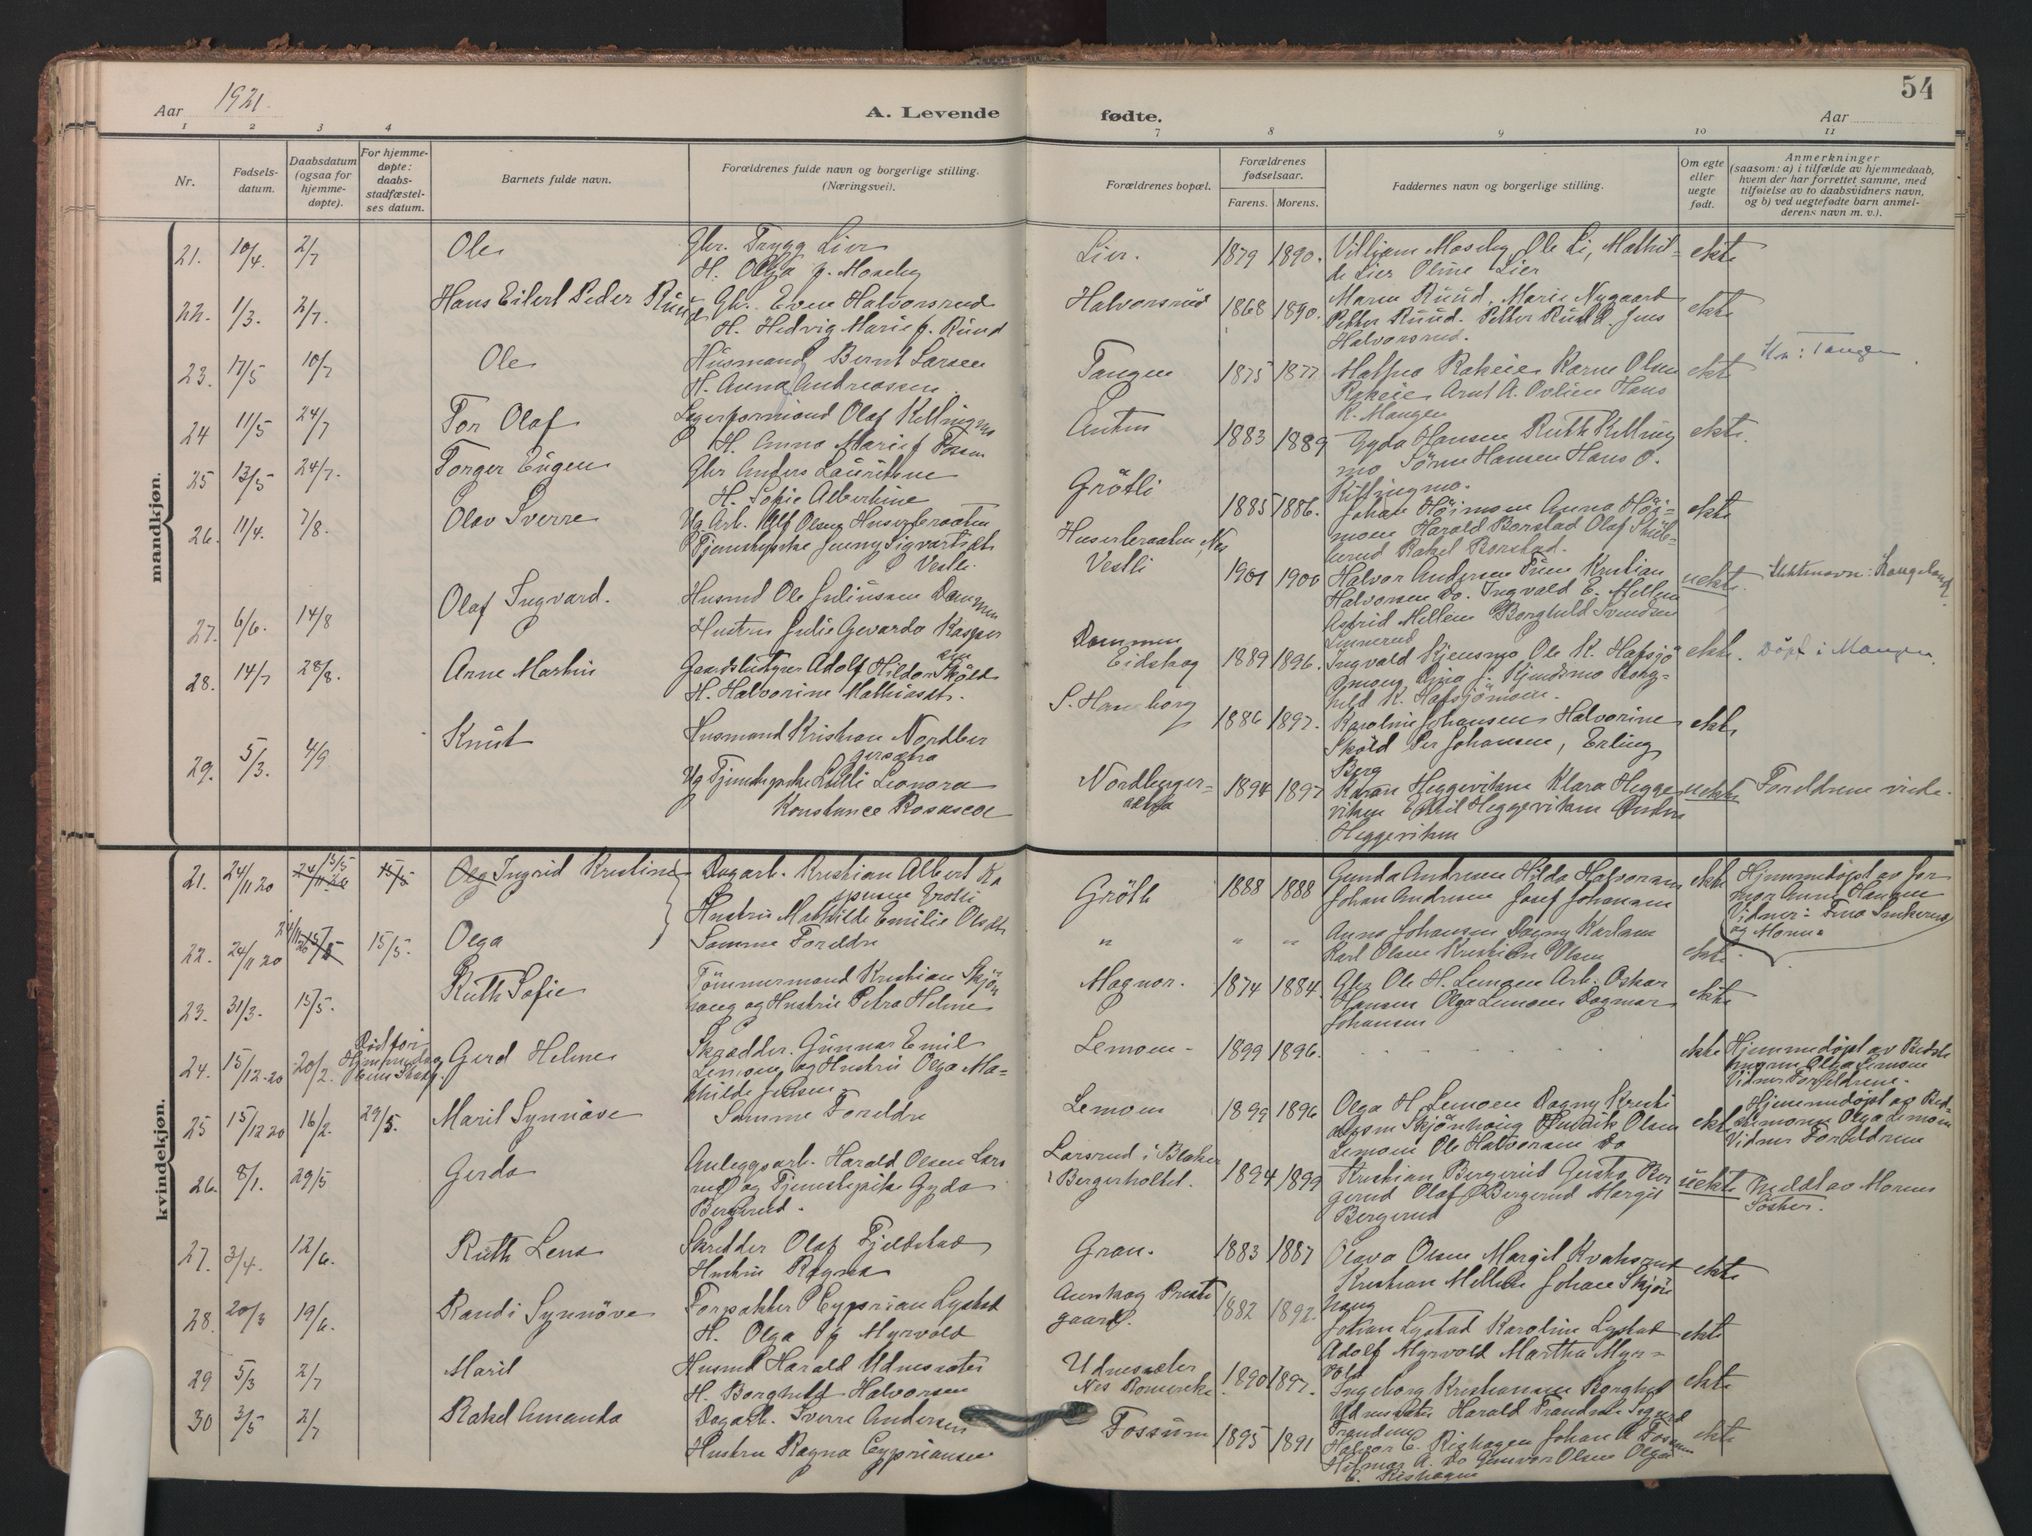 Aar 1921.
A. Levende
fødte.
54
Aar
1 2 3 4 7 8 9 10 11
Nr.
Fødsels-
datum.
Daabsdatum
(ogsaa for
hjemme-
døpte).
For hjemme-
døpte:
daabs-
stadfæstel-
ses datum.
Barnets fulde navn.
Forældrenes fulde navn og borgerlige stilling.
(Næringsvei).
Forældrenes bopæl.
Forældrenes
fødselsaar.
Farens. Morens.
Faddernes navn og borgerlige stilling.
Om egte
eller
uegte
født.
Anmerkninger
(saasom: a) i tilfælde av hjemmedaab,
hvem der har forrettet samme, med
tilføielse av to daabsvidners navn,
og b) ved uegtefødte barn anmel-
derens navn m. v.).
mandkjøn.
21. 10/4. 2/7 Ole
Gbr. Trygg Lier
H. Olga f. Moseby
Lier. 1879 1890.
Vilhjam Moseby Ole Li, Mathil-
de Lier Oline Lier
ekte
22. 1/3. 2/7. Hans Eilert Peder Ruud
Gbr. Even Halvorsrud
H. Hedvig Marie f. Ruud
Halvorsrud 1868 1890.
Maren Ruud. Marie Nygaard
Petter Ruud. Petter Ruud. Jens
Halvorsrud.
ekte
23. 17/5 10/7 Ole
Husmand Bernt Larsen
H. Anna Andreassen
Tangen 1875 1877
Rakeie Karne Olsen
Rakeie Arnt A. Ovlien Hans
K. Mangen
ekte
Tangen
24 11/5 24/7 Tor Olaf
Olaf Killingmo
H. Anna Marie f. Fossum
1883 1889
Gyda Hansen Ruth Killing
mo Sören Hansen Hans O.
Killingmo.
ekte.
25 13/5 24/7. Torger Eugen
Gbr Anders Lauritsen
H. Sofie Albertine
Grötli 1885 1886.
Johan Höimoen Anna Höi-
moen Harald Borstad Olaf
Rakel Borstad.
ekte
26. 11/4. 7/8. Olav Sverre
Ug. Arb. Alf Olsen Huserbraaten
Tjenestepike Jenny Sigvartsdt
Vestli.
Huserbraaten, Nes
Vestli 1901 1900
Halvor Andersen Kristian
Halvorsen Do. Ingvald E. Mellem
Astrid Mellem Borghild Svendsen
uekte.
27. 6/6. 14/8 Olaf Ingvard.
Husmd Ole Juliussen Dammen
Hustru Julie Gevarda Kasper
sen
Dammen
Eidskog 1889 1896.
Ingvald Ole K. Hafsjö
hild K. Hafsjömoen.
ekte.
Döpt i Mangen.
28. 14/7 28/8. Arne Martin
Gaardsbestyrer Adolf Hilder Sköld
H. Halvorine Mathiesdt.
S. Haneborg 1886 1897.
Karoline Johansen Halvorine
Sköld Per Johansen, Erling
Berg
ekte
29. 5/3. 4/9 Knut
Husmand Kristian Nordber
gersætra
Ug Tjenestepike Lilli Leonora
Konstance
Nordberger-
sætra 1894 1897
Karan Heggeviken Klara Hegge
viken Emil Heggeviken Anders
Heggeviken
uekte
Foreldrene viede.
kvindekjøn.
21. 24/11 20 15/5 24/11 20 15/5 Olg Ingrid Kristine
Dagarb. Kristian Albert Ka
spersen Grötli
Hustru Mathilde Emilie Olsdt
Grötli 1888 1888
Gunda Andresen Hilda Halvorsen
Johan Andresen Josef Johansen
ekte
Hjemmedøpt av jor
mor Anne Haugen
Vidner:
og Moren.
22. 24/11 20 24/11 20 15/5 15/5. Olga
Samme Foreldre
" " "
Anna Johansen Dagny Karlsen
Karl Olsen Kristian Olsen
ekte.
23. 31/3. 15/5. Ruth Sofie
Tömmermand Kristian Skjön
haug og Hustru Petra Helene
Magnor. 1874 1884.
Gbr Ole H. Lemoen Arb. Oskar
Hansen Olga Lemoen Dagmar
Johansen
ekte
24. 15/12-20 20/2.
Död før
Gerd Helene
Skrædder. Gunnar Emil
Lemoen og Hustru Olga Ma-
thilde Jensen.
Lemoen 1899 1896.
ekte
Hjemmedøpt av Bedste
moren Olga Lemoen
Vidner Foreldrene.
25 15/12 20 16/2. 29/5. Marit Synnöve
Samme Foreldre
Lemoen 1899 1896
Olga H. Lemoen Dagny Kristi
ansen Skjönhaug Hendrik Olsen
Lemoen Ole Halvorsen Do
ekte
Hjemmedøpt av Bed-
stemoren Olga Lemoen
Vidner Foreldrene
26. 8/1. 29/5 Gerda
Anleggsarb. Harald Olsen Lars
rud og Tjenestepike Gyda
Bergerud.
Larsrud i Blaker
Bergerholtet. 1894 1899
Kristian Bergerud Gusta Ber
gerud Olaf Bergerud Margit
Bergerud
uekte
av Morens
Söster.
27. 3/4. 12/6. Ruth Lena
Skredder Olaf Fjeldstad
Hustru Ragna
Gran. 1883 1887
Olava Olsen Margit
Kristian Mellem Johan Skjön
haug
ekte
28. 20/3 19/6. Randi Synnöve
Forpakter Cyprian Lystad
H. Olga f. Myrvold
Aurskog Preste
gaard. 1882 1892.
Johan Lystad Karoline Lystad
Adolf Myrvold Martha Myr-
vold
ekte
29 5/3 2/7 Marit
Husmd Harald Udnessæter
H. Borghild Halvorsen
Udnessæter
Nes Romerike 1890 1897.
Ingeborg Kristiansen Borghild
Udnessæter Harald Sigurd
ekte
30 3/5 2/7 Rakel Amanda
Dagarb. Sverre Andersen
Hustru Ragna Cypriansen
Fossum 1895 1891
Halvor C. Rishagen Johan A Fossum
Hilmar A. Do Gunvor Olsen Olga
C. Rishagen
ekte